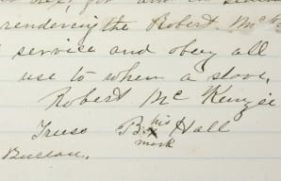 rendering the Robert Mc
service and obey all
use to when a slave.
Robert Mc Kenzie
Truso B his x mark Hall
Bureau.